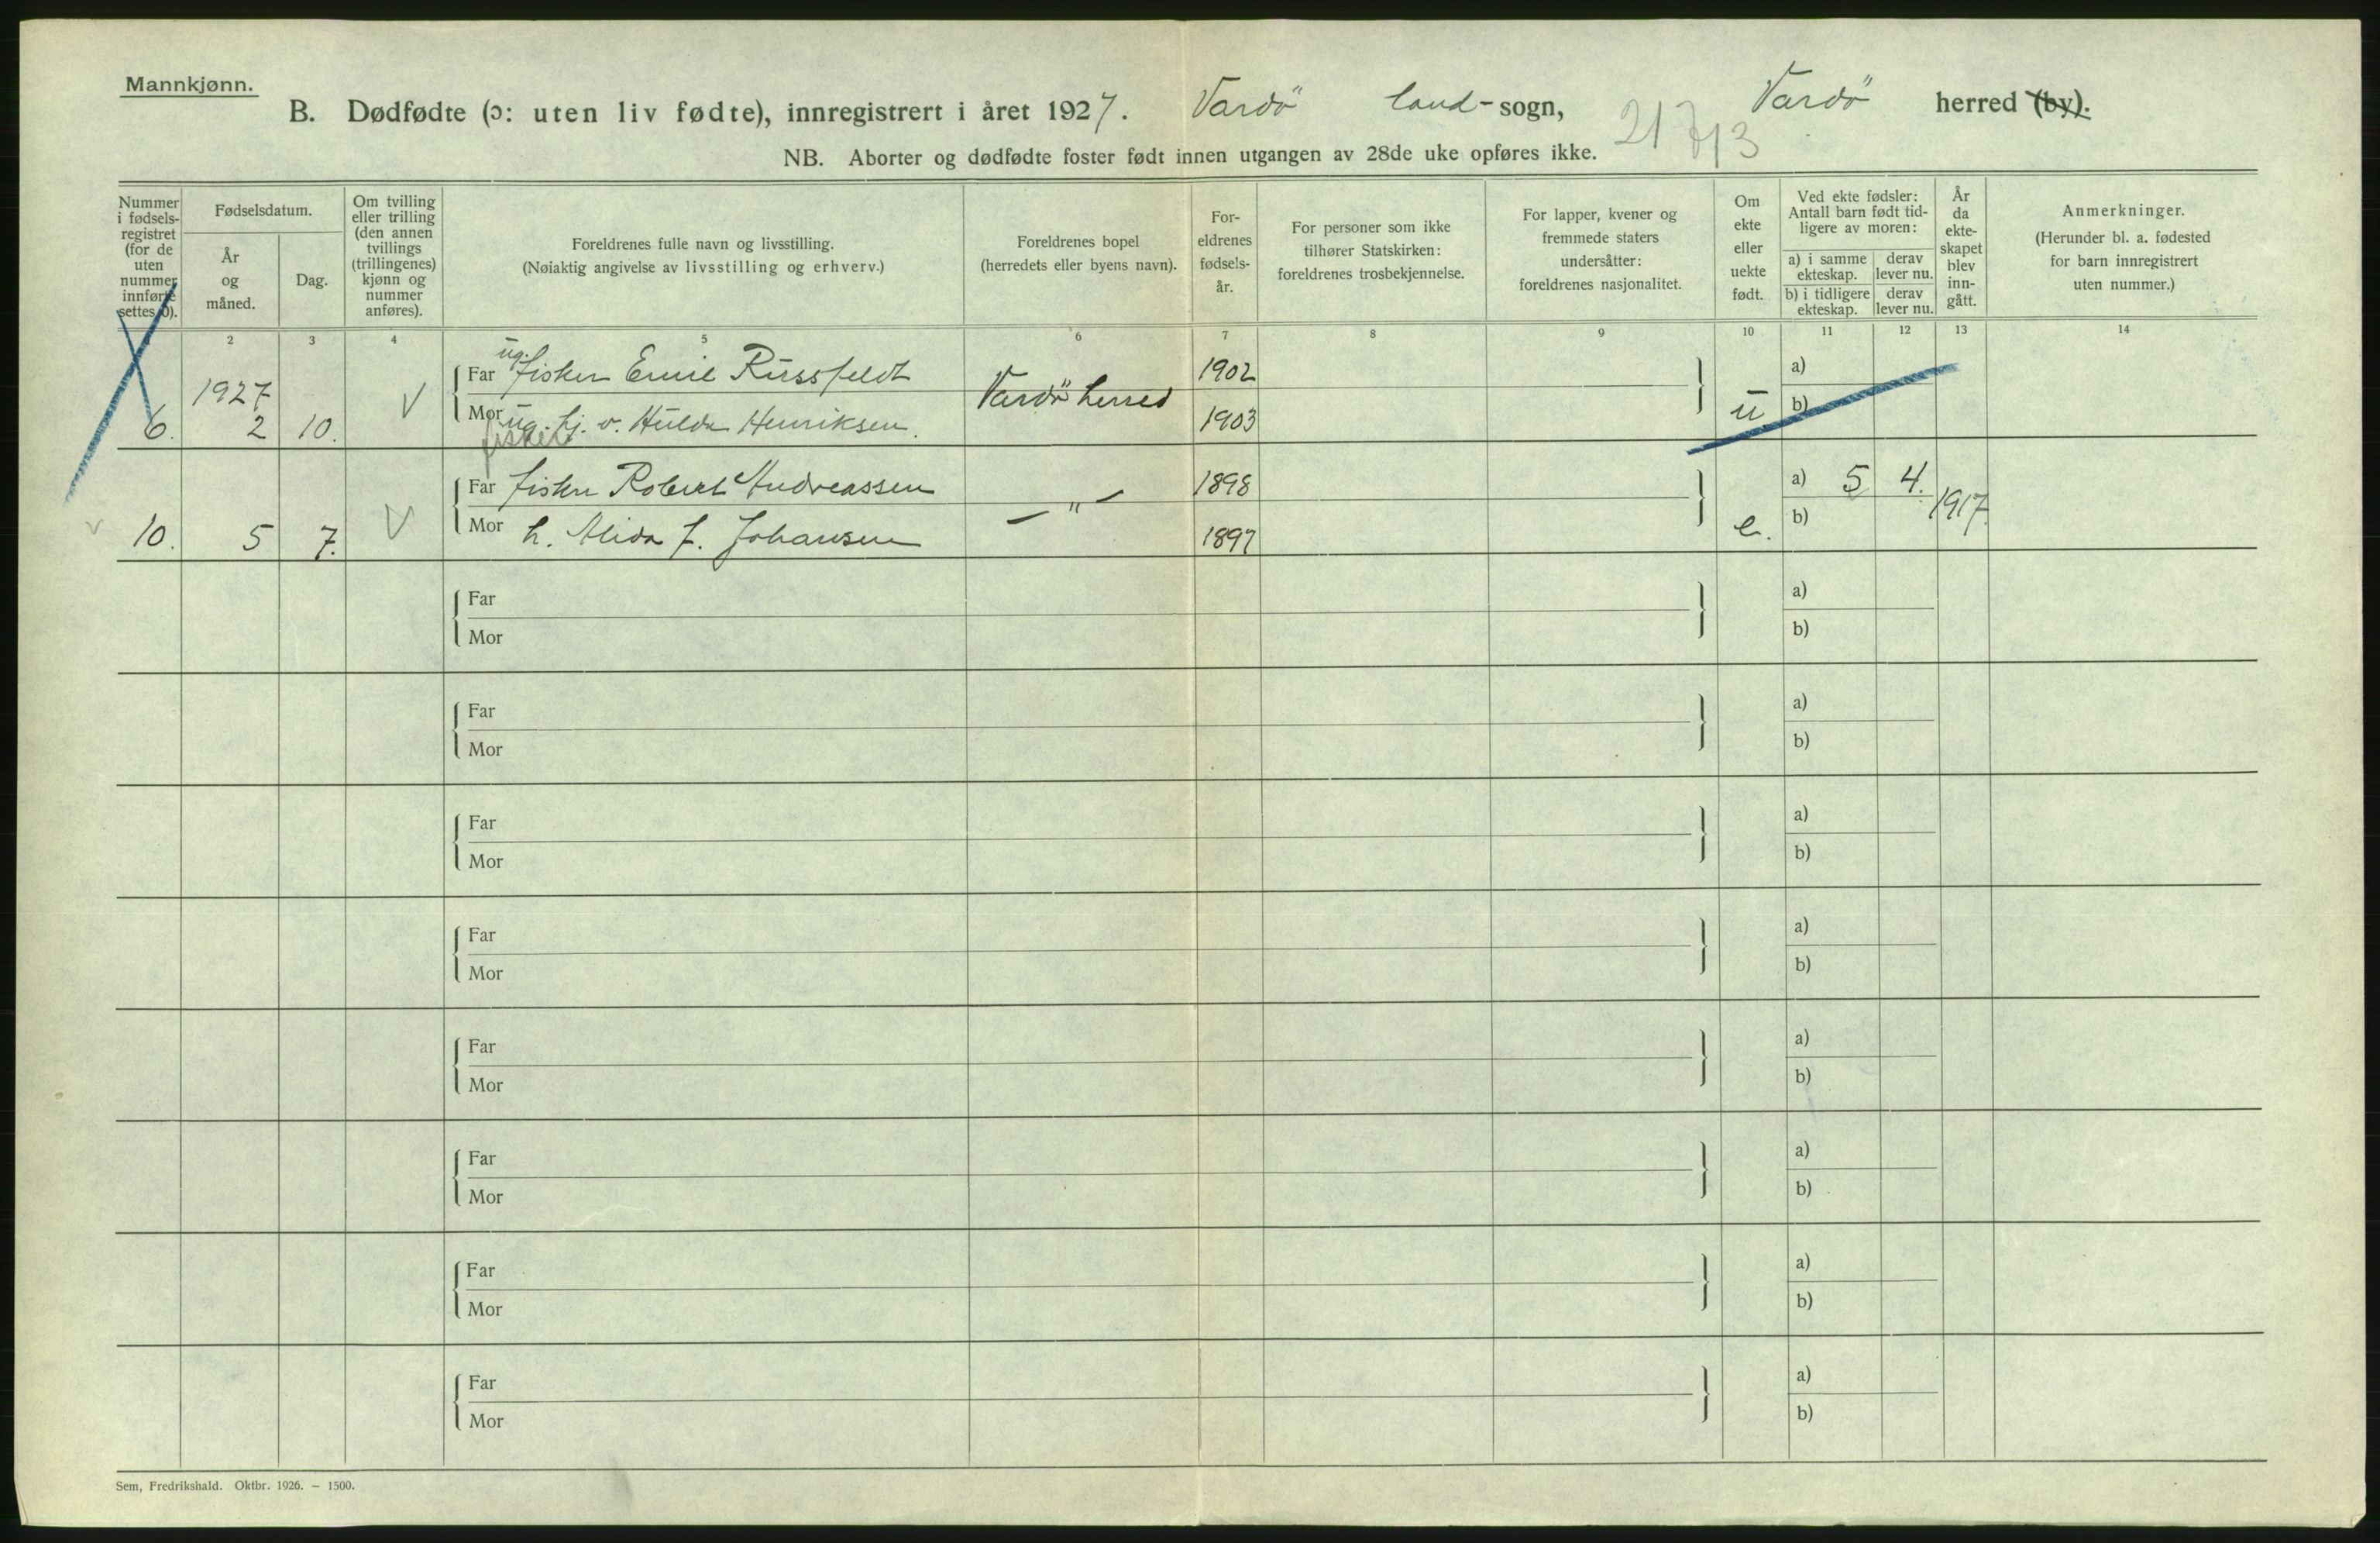 Mannkjønn.
B. Dødfødte (ɔ: uten liv fødte), innregistrert i året 1927. Vardö land-sogn, Vardö herred (by).
2173
NB. Aborter og dødfødte foster født innen utgangen av 28de uke opføres ikke.
Nummer i fødsels-registret (for de uten nummer innførte settes 0).
Fødselsdatum.
År og måned.
Dag.
Om tvilling eller trilling (den annen tvillings (trillingenes) kjønn og nummer anføres).
Foreldrenes fulle navn og livsstilling.
(Nøiaktig angivelse av livsstilling og erhverv.)
Foreldrenes bopel
(herredets eller byens navn).
For-eldrenes fødsels-år.
For personer som ikke tilhører Statskirken: foreldrenes trosbekjennelse.
For lapper, kvener og fremmede staters undersåtter: foreldrenes nasjonalitet.
Om ekte eller uekte født.
Ved ekte fødsler: Antall barn født tid-ligere av moren:
a) i samme ekteskap. derav lever nu.
b) i tidligere ekteskap. derav lever nu.
År da ekte-skapet blev inn-gått.
Anmerkninger.
(Herunder bl. a. fødested for barn innregistrert uten nummer.)
2 3 4 5 6 7 8 9 10 11 12 13 14
Far ug. fisker Emil Russfeldt Vardö herred 1902 a)
6. 1927 2 10. V
Mor ug. hj. v. Hulda Henriksen. 1903 u b)
fisker
Far fisker Robert Andreassen — " — 1898 a) 5 4. 1917.
10. 5 7. V
Mor h. Alida J. Johansen 1897 e. b)
Far a)
Mor b)
Far a)
Mor b)
Far a)
Mor b)
Far a)
Mor b)
Far a)
Mor b)
Far a)
Mor b)
Far a)
Mor b)
Far a)
Mor b)
Sem, Fredrikshald. Oktbr. 1926. — 1500.